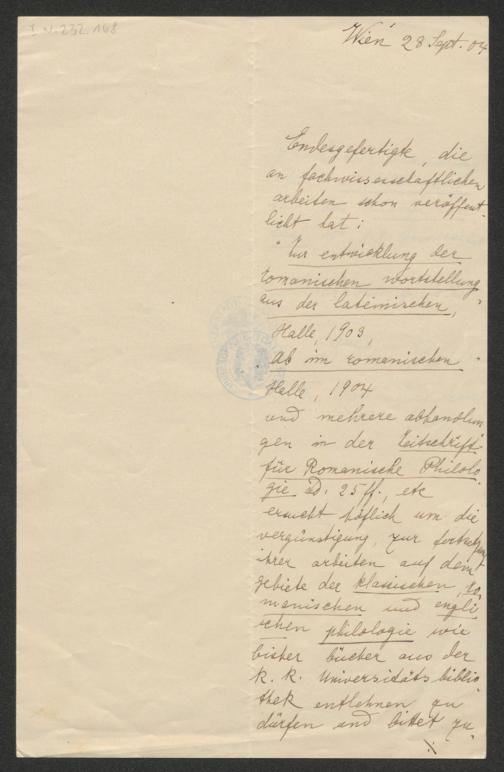 I.N. 232.168
Wien 28 Sept. 04
Endesgefertigte, die
an fachwissenschaftlichen
arbeiten schon veröffent-
licht hat:
"Zur entwicklung der
romanischen wortstellung
aus der lateinischen,"
Halle, 1903,
"Ab im romanischen"
Halle, 1904
und mehrere abhandlun
gen in der Zeitschrift
für Romanische Philolo-
gie bd. 25 ff., etc
ersucht höflich um die
vergünstigung, zur fortsetzung
ihrer arbeiten auf dem
gebiete der klassischen, ro-
manischen und engli
schen philologie wie
bisher bücher aus der
k. k. Universitäts biblio
thek entlehnen zu
dürfen und bittet zu